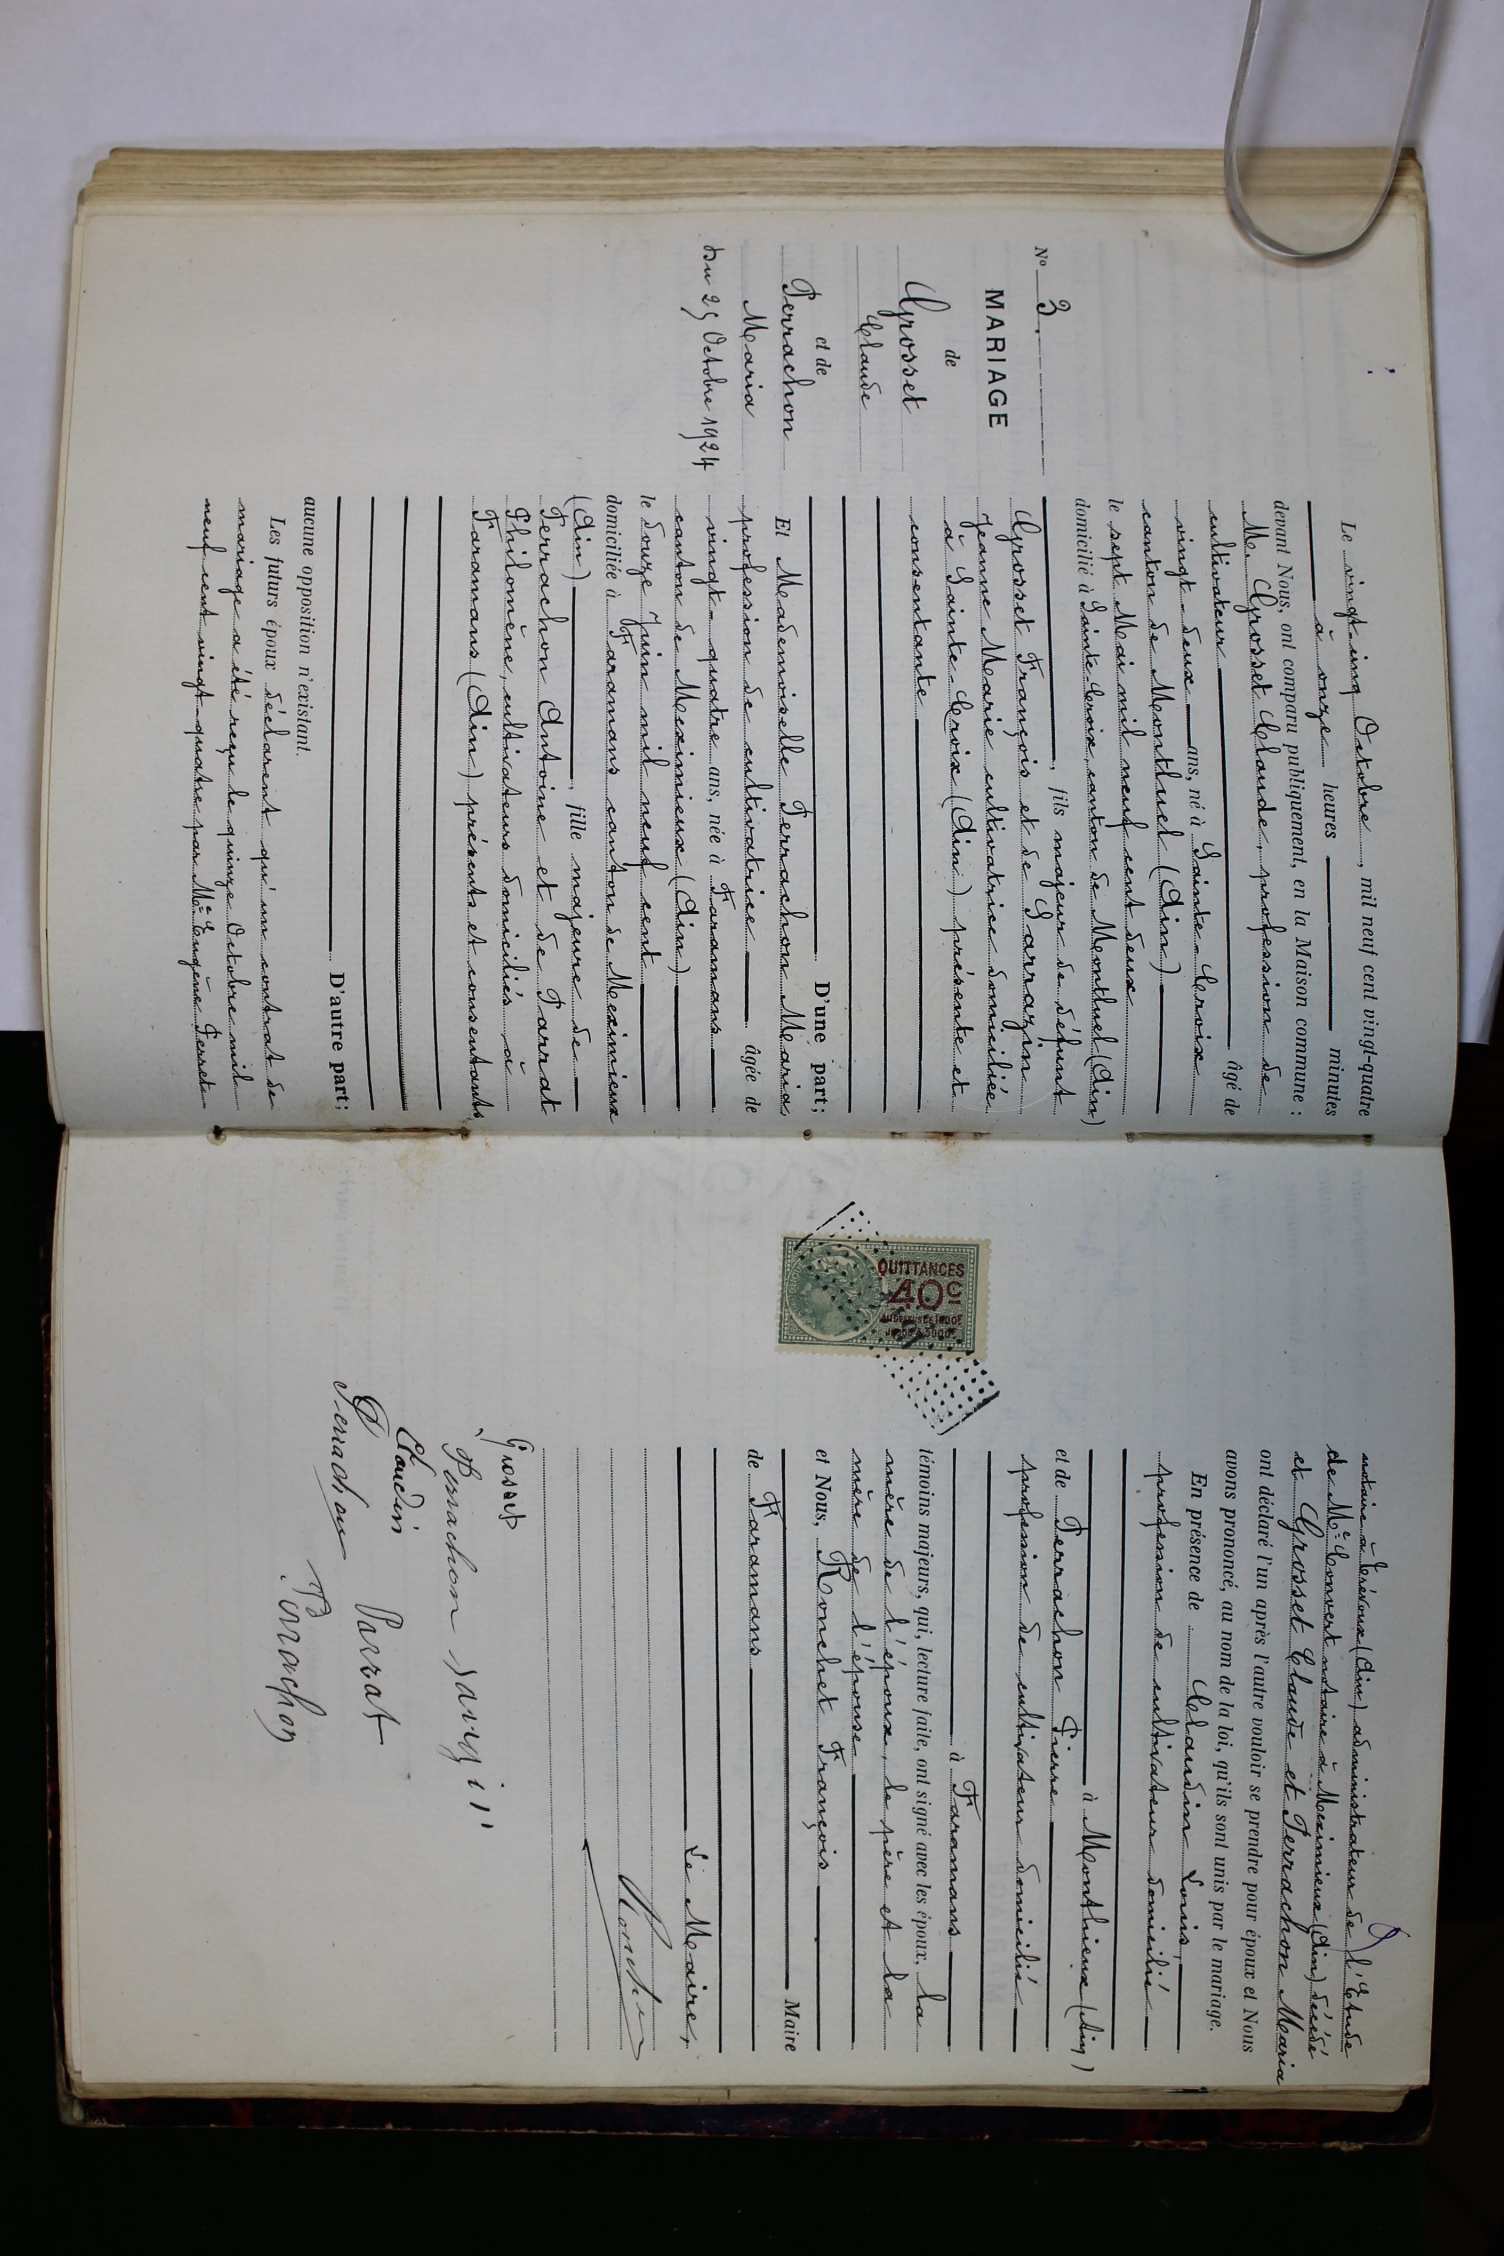 N° 3.
MARIAGE
de
Grosset
Claude
et de
Perrachon
Maria
Du 25 Octobre 1924
Le vingt-cinq Octobre, mil neuf cent vingt-quatre
à onze heures minutes
devant Nous, ont comparu publiquement, en la Maison commune :
M. Grosset Claude, profession de
cultivateur âgé de
vingt-deux ans, né à Sainte-Croix
canton de Montluel (Ain)
le sept Mai mil neuf cent deux
domicilié à Sainte-Croix, canton de Montluel (Ain)
, fils majeur de défunt
Grosset François et de Sarrazin
Jeanne Marie cultivatrice domiciliée
à Sainte-Croix (Ain) présente et
consentante
D'une part;
Et Mademoiselle Perrachon Maria
profession de cultivatrice âgée de
vingt-quatre ans, née à Faramans
canton de Meximieux (Ain)
le douze Juin mil neuf cent
domiciliée à Faramans canton de Meximieux
(Ain) , fille majeure de
Perrachon Antoine et de Parrat
Philomène, cultivateurs domiciliés à
Faramans (Ain) présents et consentants
D'autre part;
aucune opposition n'existant.
Les futurs époux déclarent qu'un contrat de
mariage a été reçu le quinze Octobre mil
neuf cent vingt-quatre par Me Eugène Perret
notaire à Trévoux (Ain) administrateur de l'Etude
de Me Convert notaire à Meximieux (Ain) décédé
et Grosset Claude et Perrachon Maria
ont déclaré l'un après l'autre vouloir se prendre pour époux et Nous
avons prononcé, au nom de la loi, qu'ils sont unis par le mariage.
En présence de Claudin Louis,
profession de cultivateur domicilié
à Monthieux (Ain)
et de Perrachon Pierre
profession de cultivateur domicilié
à Faramans
témoins majeurs, qui, lecture faite, ont signé avec les époux, la
mère de l'époux, le père et la
mère de l'épouse
et Nous, Ronchet François
Maire
de Faramans
Le Maire,
Ronchet
QUITTANCES
40c
Grosset
Perrachon
Claudin
Parrat
Perrachon
Perrachon